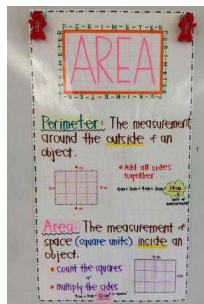 P-E-R-I-M-E-T-E-R
AREA
Perimeter: The measurement
around the outside of an
object.
* Add all sides
together...
Area: The measurement of
space (square units) inside an
object.
* count the squares
or
* multiply the sides